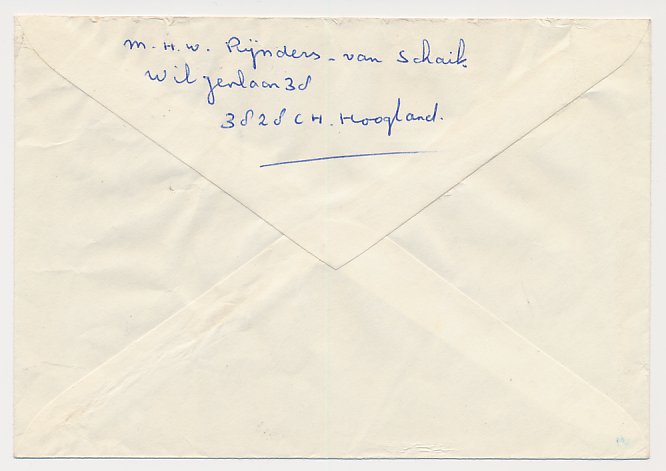 M.H.W. Rijnders-van Schaik
Wilgenlaan 38
3828 CH. Hoogland.